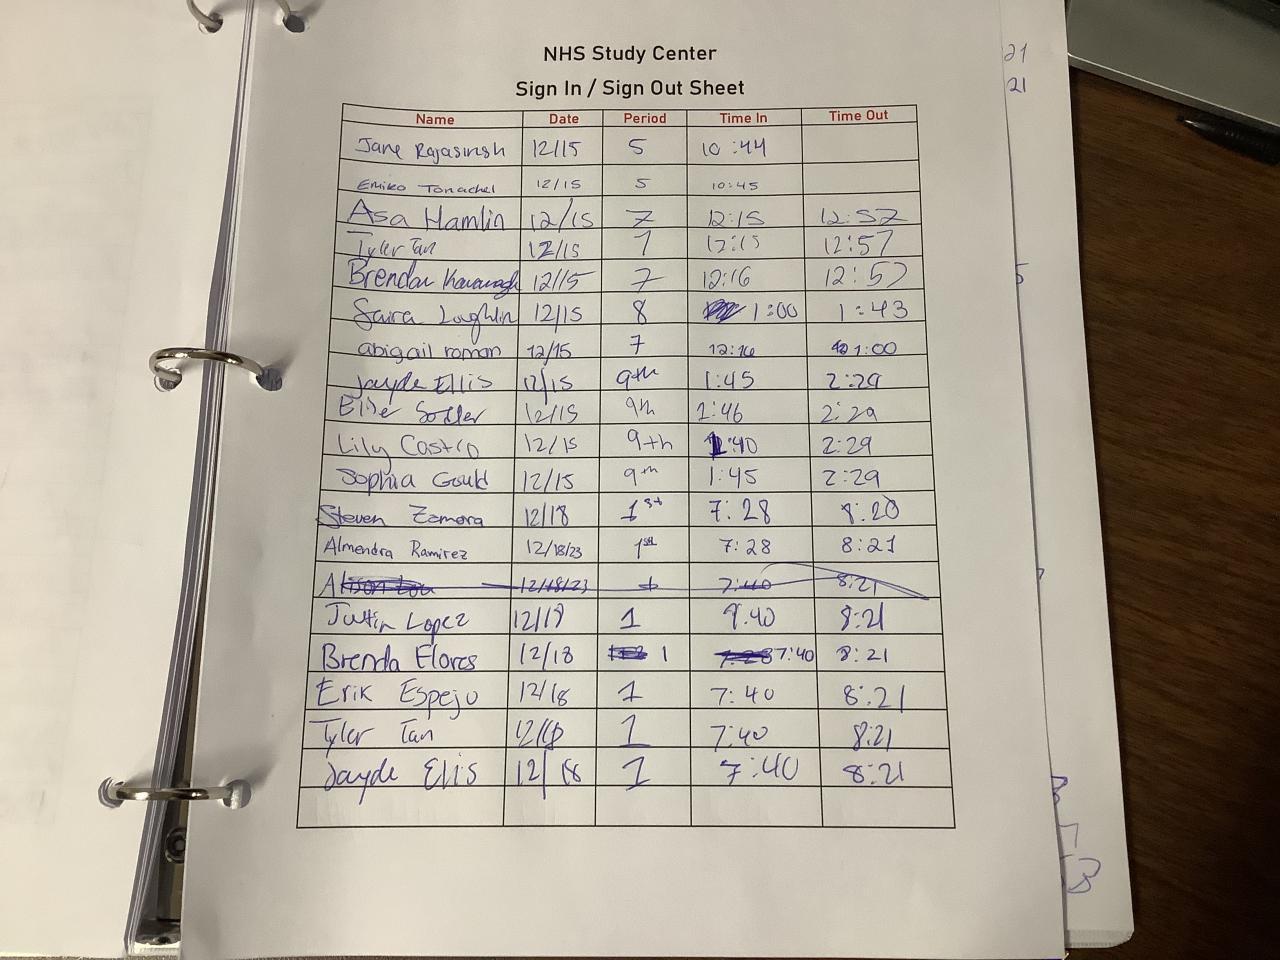 NHS Study Center
Sign In / Sign Out Sheet
Name Date Period Time In Time Out
Jane Rajasingh 12/15 5 10:44
Emiko Tonachel 12/15 5 10:45
Asa Hamlin 12/15 7 12:15 12:57
Tyler Tan 12/15 7 12:15 12:57
Brendan Kavanagh 12/15 7 12:16 12:57
Saira Loughlin 12/15 8 1:00 1:43
abigail roman 12/15 7 12:16 1:00
Jayde Ellis 12/15 9th 1:45 2:29
12/15 9th 1:46 2:29
Lily Castro 12/15 9th 1:40 2:29
Sophia Gould 12/15 9th 1:45 2:29
Steven Zamora 12/18 1st 7:28 8:20
Almendra Ramirez 12/18/23 1st 7:28 8:21
12/18/23 1 7:40 8:21
Justin Lopez 12/18 1 7:40 8:21
Brenda Flores 12/18 1 7:40 8:21
Erik Espejo 12/18 1 7:40 8:21
Tyler Tan 12/18 1 7:40 8:21
Jayde Ellis 12/18 1 7:40 8:21
21
21